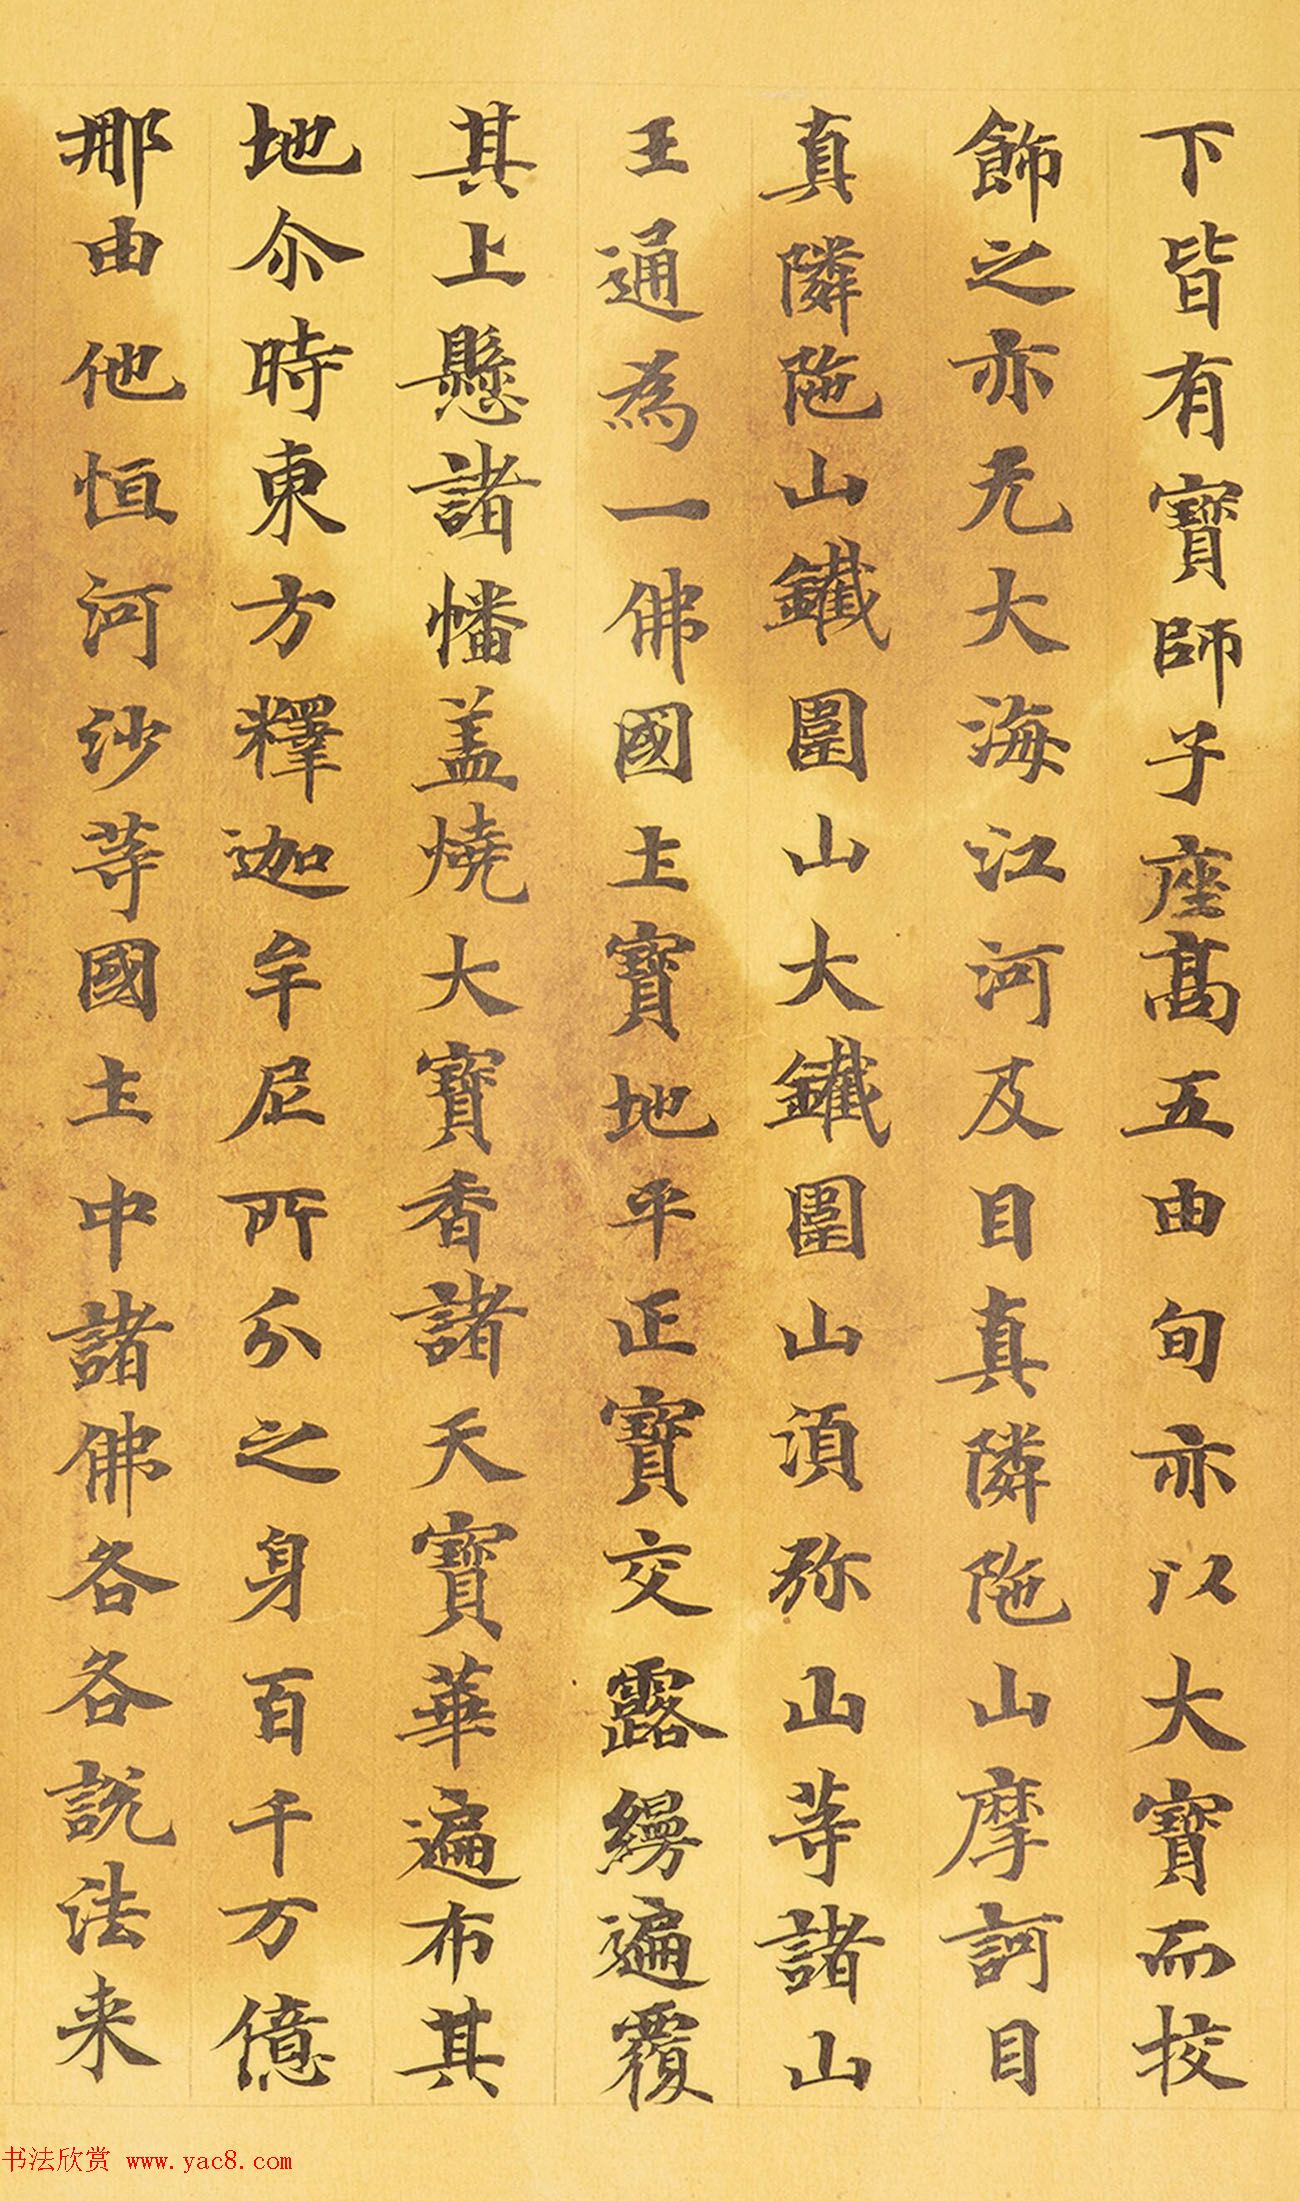 下皆有寶師子座髙五由旬亦以大寶而挍
飾之亦无大海江河及目真隣陁山摩訶目
真隣陁山鐵圍山大鐵圍山須弥山等諸山
王通為一佛國土寶地平正寶交露縵遍覆
其上懸諸幡盖燒大寶香諸天寶華遍布其
地尒時東方釋迦牟尼所分之身百千万億
那由他恒河沙等國土中諸佛各各說法来
书法欣赏 www.yac8.com